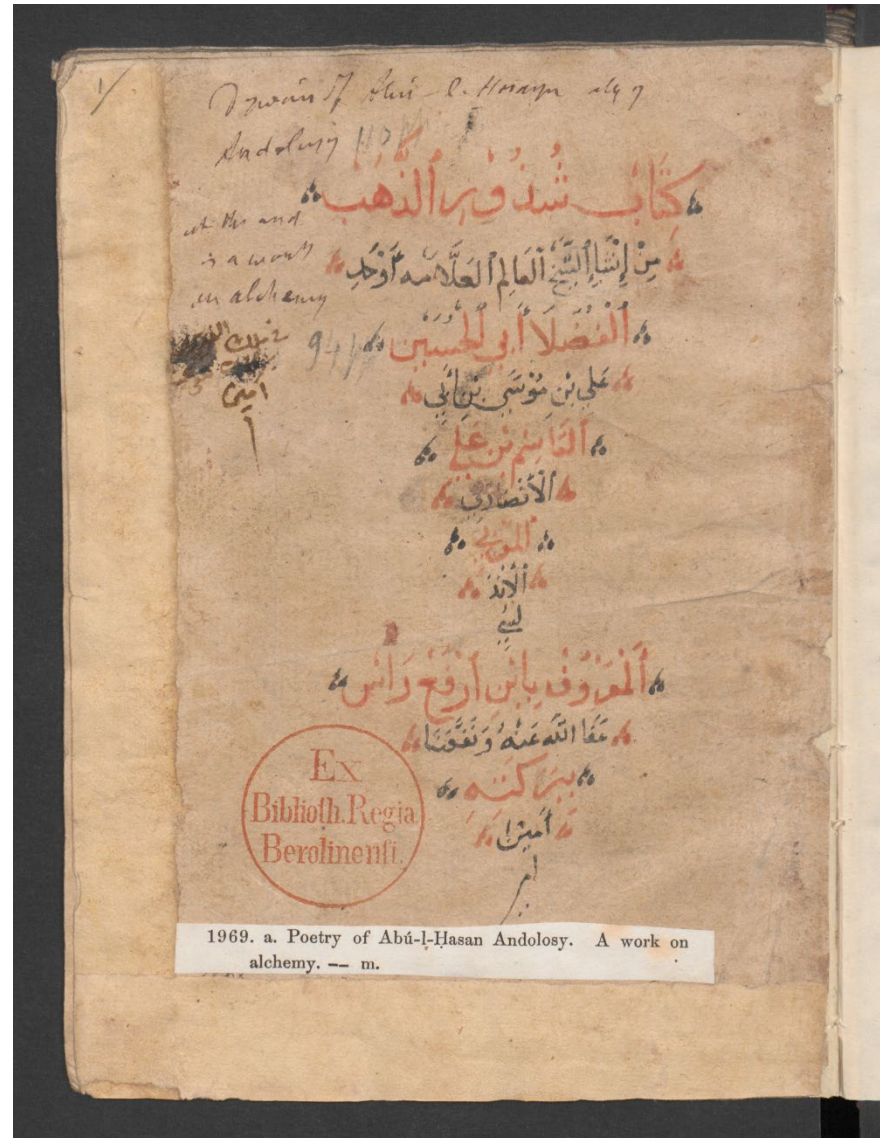 1
Dywán of Abú-l-Hosayn aly
Andolusy
at the end
is a work
on alchemy
امين
كِتَابُ شُذُورِ ٱلذَّهَبْ
مِنْ إِنْشَاءِ ٱلشَّيْخِ ٱلْعَالِمِ ٱلْعَلَّامه أَوْحَدِ
ٱلْفُضَلَا أَبِي ٱلْحُسَيْنِ
عَلِي بْنِ مُوْسَى بْنِ أَبِي
ٱلْقَاسِمْ بْنِ عَلِي
ٱلْأَنْصَارِي
ٱلْأَنْدَ
لُسِي
ٱلْمَعْرُوفْ بِابْنِ أَرْفَعْ رَاسْ
عَفَا اللّه عَنْهُ وَنَفَعَنَا
بِبَرَكَتِهِ
أَمِين
Ex
Biblioth. Regia
Berolinensi.
1969. a. Poetry of Abú-l-Ḥasan Andolosy. A work on
alchemy. — m.